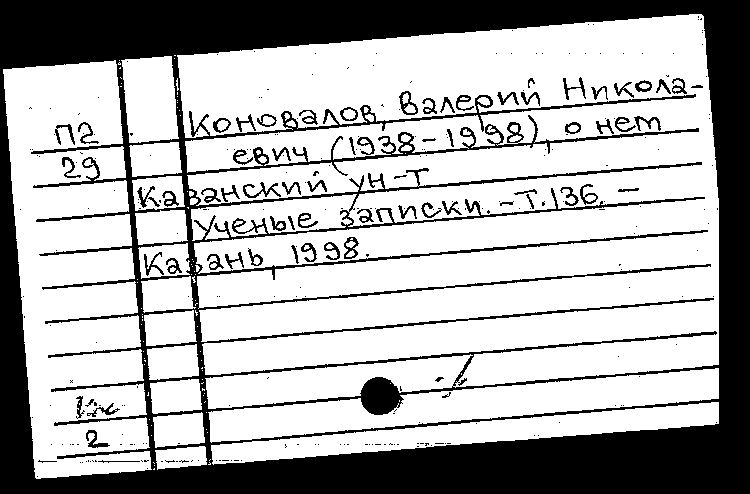 П2
29
Коновалов, Валерий Никола-
евич (1938-1998), о нем
Казанский ун-т
Ученые записки. -Т.136. -
Казань, 1998.
2